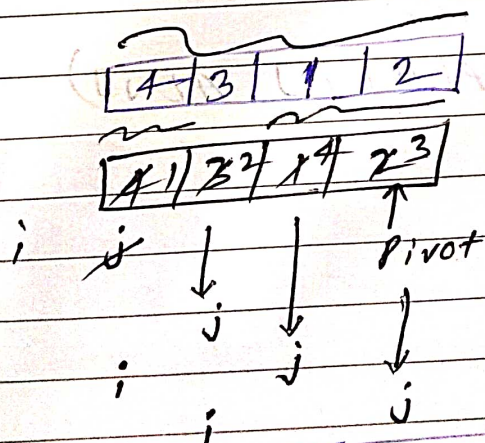 4 3 1 2
4 1 3 2 1 4 2 3
i j Pivot
j
i j j
i